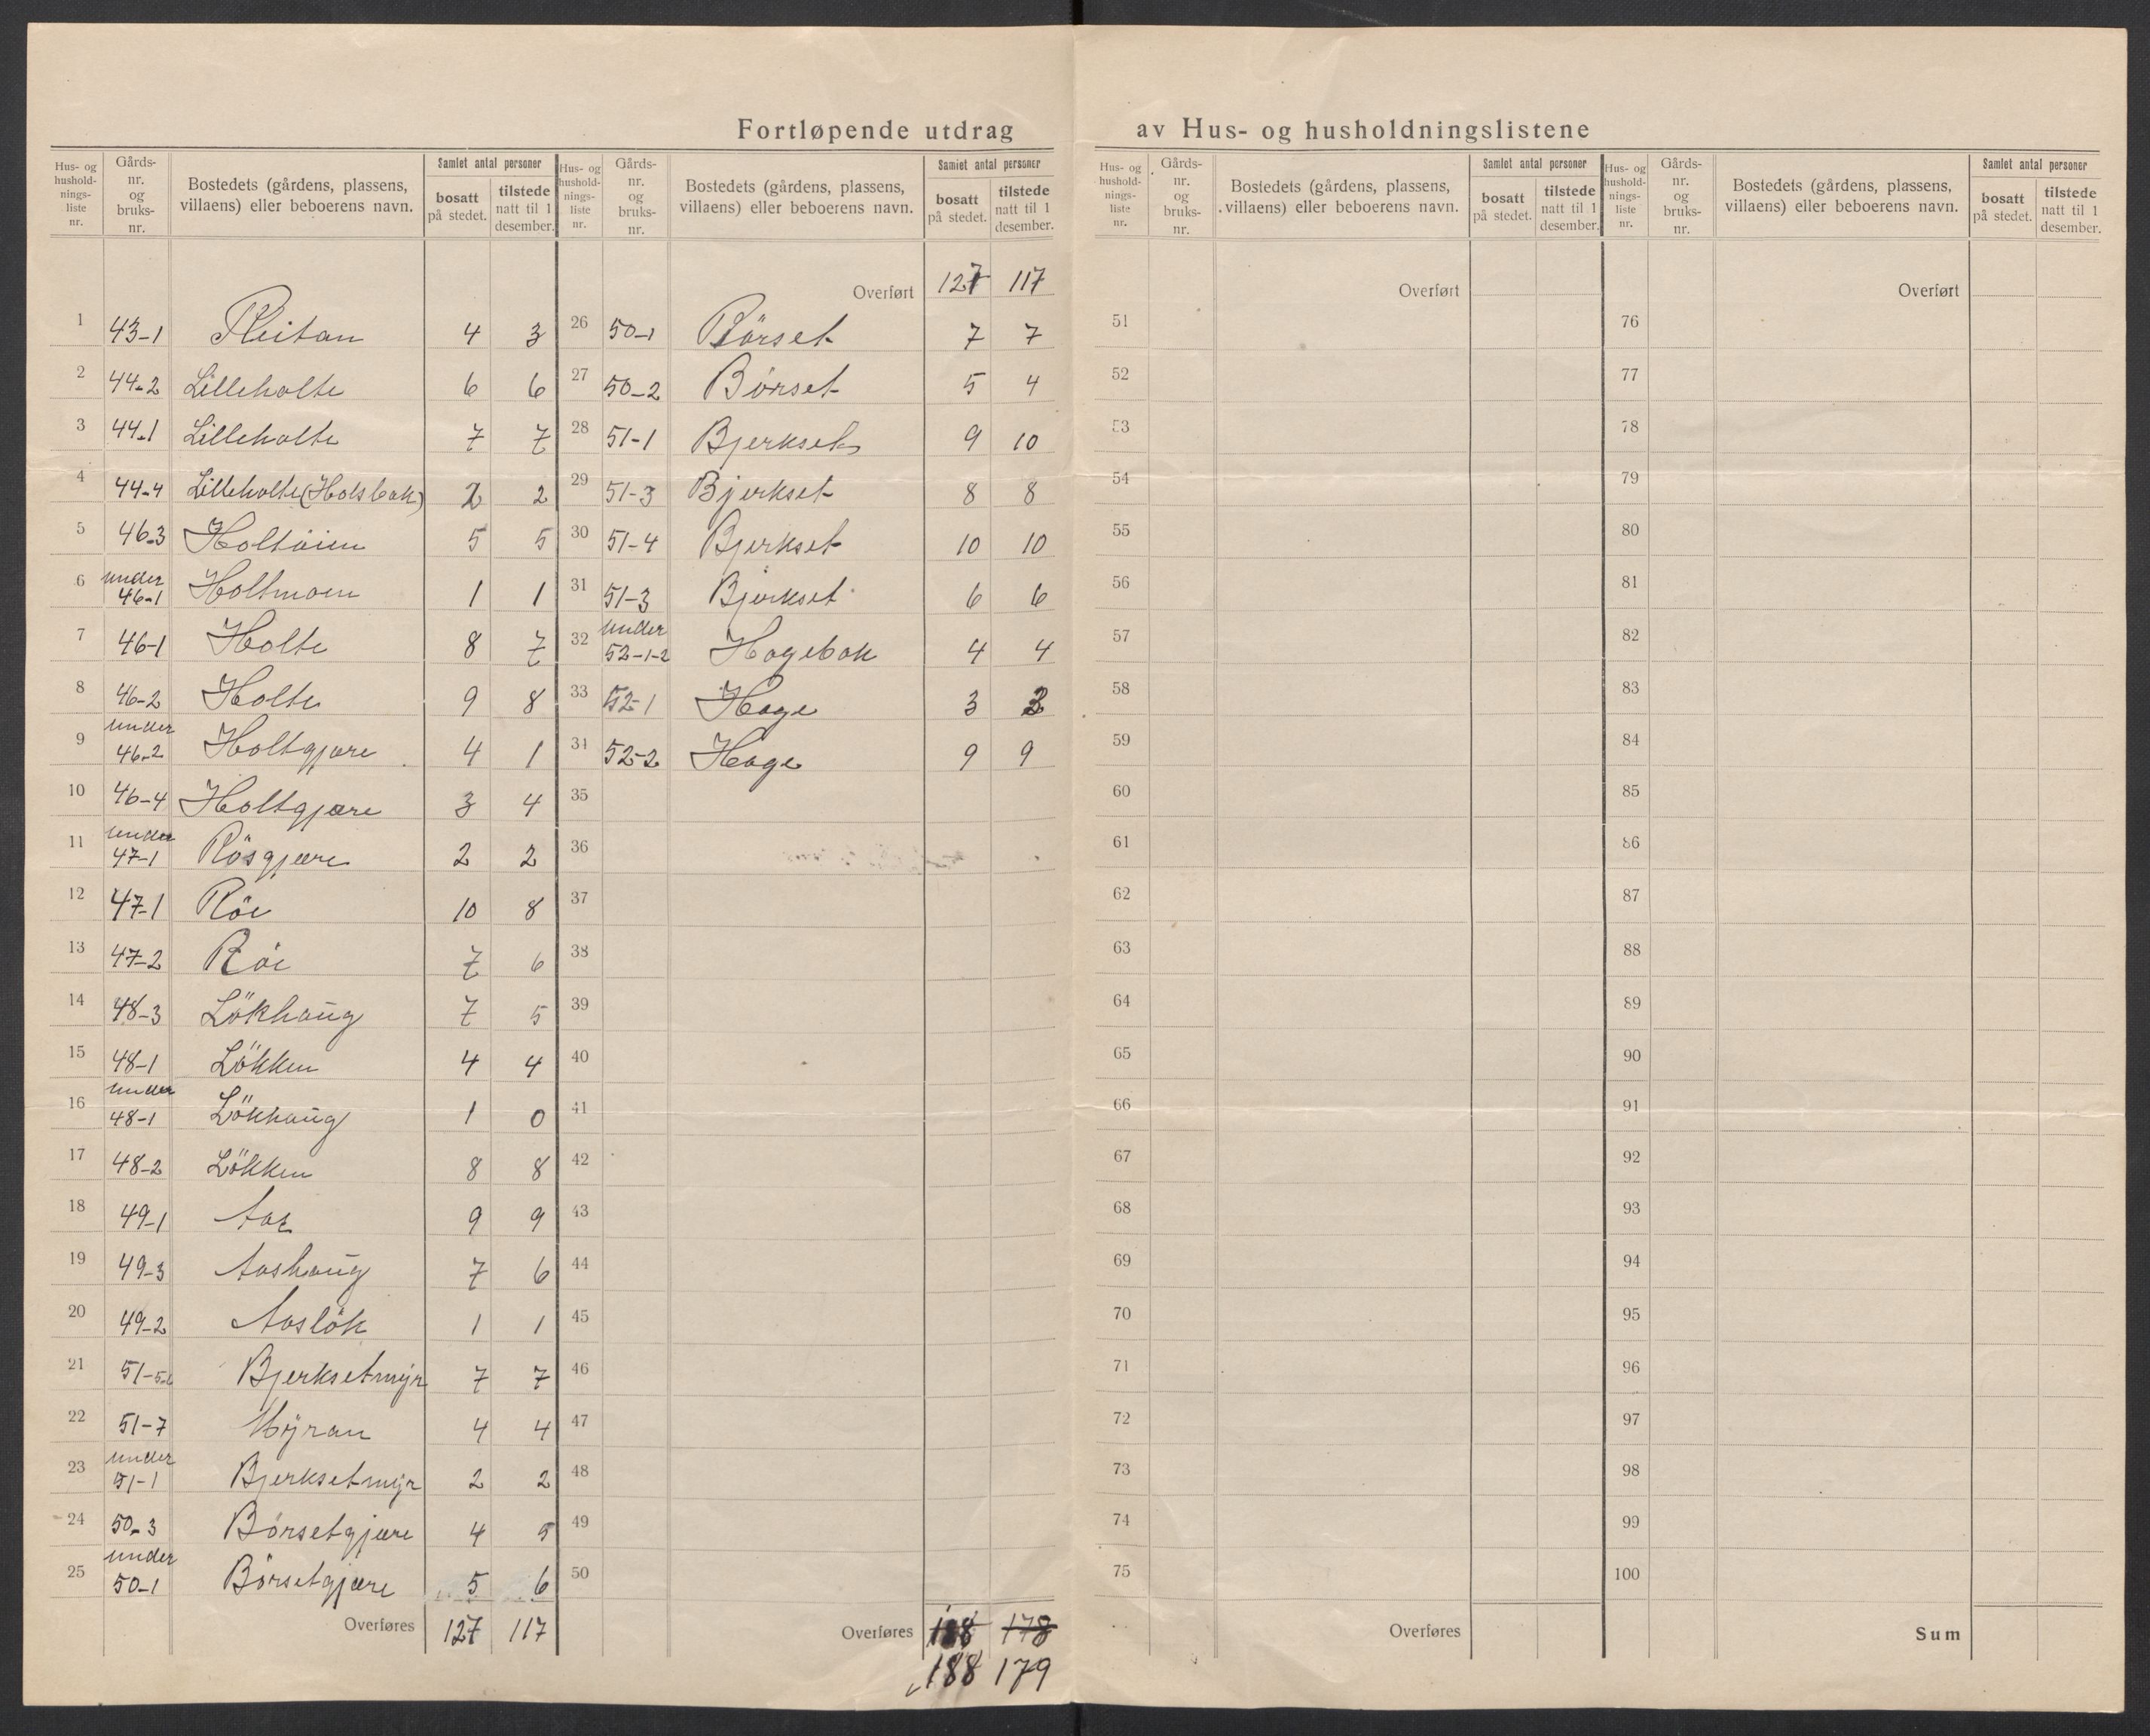 Fortløpende utdrag av Hus- og husholdningslistene
Hus- og husholdnings-liste nr. | Gårds-nr. og bruks-nr. | Bostedets (gårdens, plassens, villaens) eller beboerens navn. | Samlet antal personer bosatt på stedet. | tilstede natt til 1 desember.
1 43-1 Pleitan 4 3
2 44-2 Lilleholte 6 6
3 44-1 Lilleholte 7 7
4 44-4 Lilleholte (Holsbak) 2 2
5 46-3 Holtöien 5 5
6 under 46-1 Holtmoen 1 1
7 46-1 Holte 8 7
8 46-2 Holte 9 8
9 under 46-2 Holtgjære 4 1
10 46-4 Holtgjære 3 4
11 under 47-1 Rösgjære 2 2
12 47-1 Röe 10 8
13 47-2 Röe 7 6
14 48-3 Lökhaug 7 5
15 48-1 Lökken 4 4
16 under 48-1 Lökhaug 1 0
17 48-2 Lökken 8 8
18 49-1 Aas 9 9
19 49-3 Aashaug 7 6
20 49-2 Aaslök 1 1
21 51-5-6 Bjerksetmyr 7 7
22 51-7 Myran 4 4
23 under 51-1 Bjerksetmyr 2 2
24 50-3 Börsetgjære 4 5
25 under 50-1 Börsetgjære 5 6
Overføres 127 117
Hus- og husholdnings-liste nr. | Gårds-nr. og bruks-nr. | Bostedets (gårdens, plassens, villaens) eller beboerens navn. | Samlet antal personer bosatt på stedet. | tilstede natt til 1 desember.
Overført 127 117
26 50-1 Börset 7 7
27 50-2 Börset 5 4
28 51-1 Bjerkset 9 10
29 51-3 Bjerkset 8 8
30 51-4 Bjerkset 10 10
31 51-3 Bjerkset 6 6
32 under 52-1-2 Hagebak 4 4
33 52-1 Hage 3 3
34 52-2 Hage 9 9
35
36
37
38
39
40
41
42
43
44
45
46
47
48
49
50
Overføres 188 178
188 179
Hus- og husholdnings-liste nr. | Gårds-nr. og bruks-nr. | Bostedets (gårdens, plassens, villaens) eller beboerens navn. | Samlet antal personer bosatt på stedet. | tilstede natt til 1 desember.
Overført
51
52
53
54
55
56
57
58
59
60
61
62
63
64
65
66
67
68
69
70
71
72
73
74
75
Overføres
Hus- og husholdnings-liste nr. | Gårds-nr. og bruks-nr. | Bostedets (gårdens, plassens, villaens) eller beboerens navn. | Samlet antal personer bosatt på stedet. | tilstede natt til 1 desember.
Overført
76
77
78
79
80
81
82
83
84
85
86
87
88
89
90
91
92
93
94
95
96
97
98
99
100
Sum